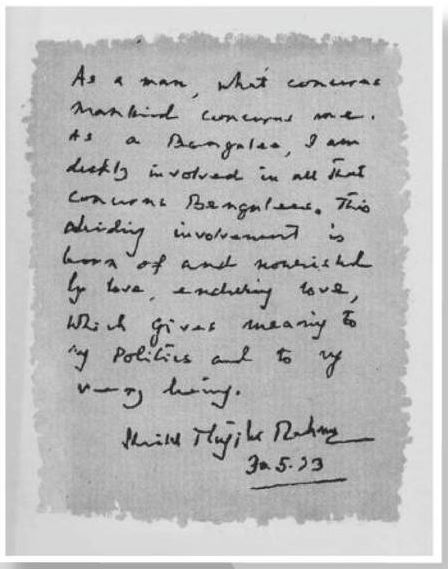 As a man, what concerns
mankind concerns me.
As a Bengalee, I am
deeply involved in all that
concerns Bengalees. This
abiding involvement is
born of and nourished
by love, enduring love,
which gives meaning to
my Politics and to my
very being.
Sheikh Mujibur Rahman
30.5.73